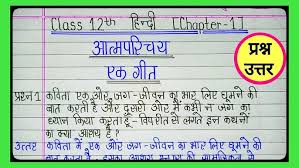 Class 12th हिन्दी [Chapter-1]
आत्मपरिचय
एक गीत
प्रश्न उत्तर
प्रश्न1 कविता एक ओर जग-जीवन का भार लिए घूमने की
बात करती है और दूसरी ओर मैं कभी न जग का
ध्यान किया करता हूँ- विपरीत से लगते इन कथनों
का क्या आशय है?
उत्तर कविता में एक ओर जग-जीवन का भार लिए घूमने की